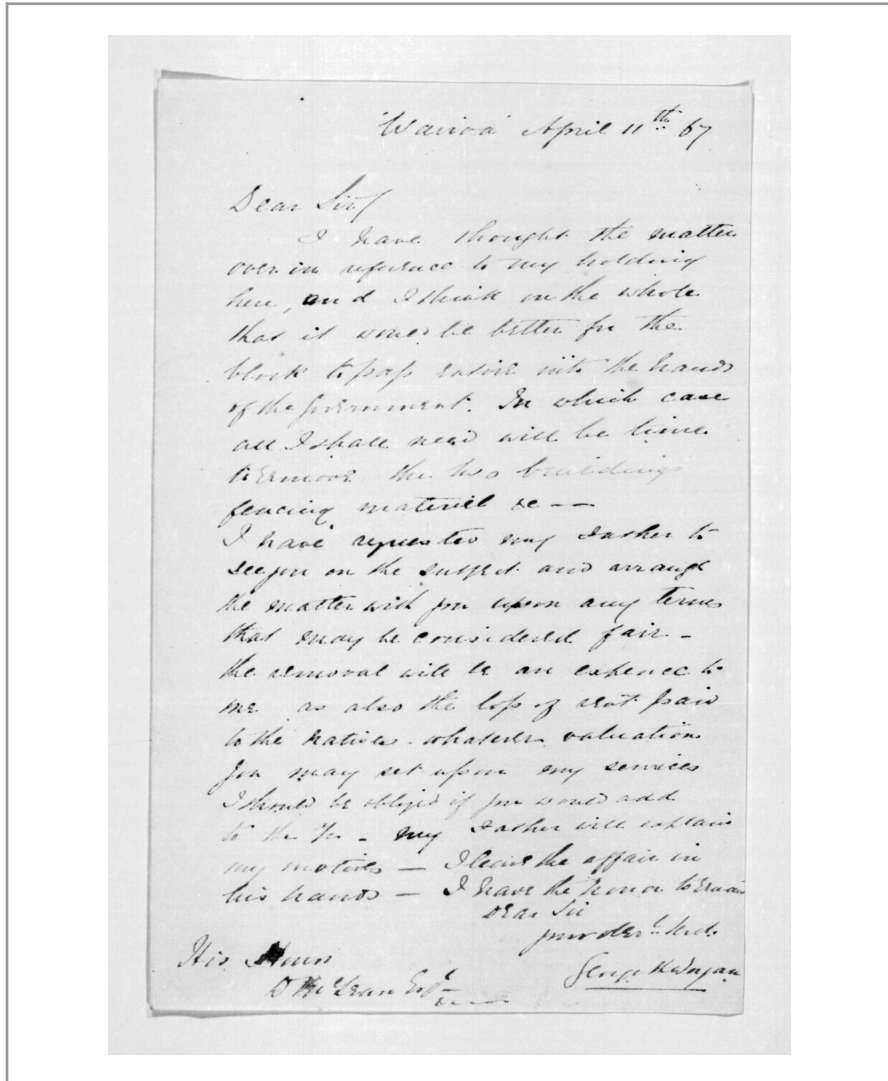 'Wairoa' April 11th 67
Dear Sir/
I have thought the matter
over in reference to my holding
here, and I think on the whole
that it would be better for the
block to pass entire into the hands
of the Government. In which case
all I shall need will be time
to remove the two buildings
fencing material &c — —
I have requested my Father to
see you on the subject and arrange
the matter with you upon any terms
that may be considered fair —
the removal will be an expence to
me as also the loss of rent paid
to the natives. whatever valuation
you may set upon my services
I should be obliged if you would add
to the — my Father will explain
my motives — I leave the affair in
his hands — I have the honor to remain
Dear Sir
your obdt. Servt.
George H Worgan
His Honor
D McLean Esqr